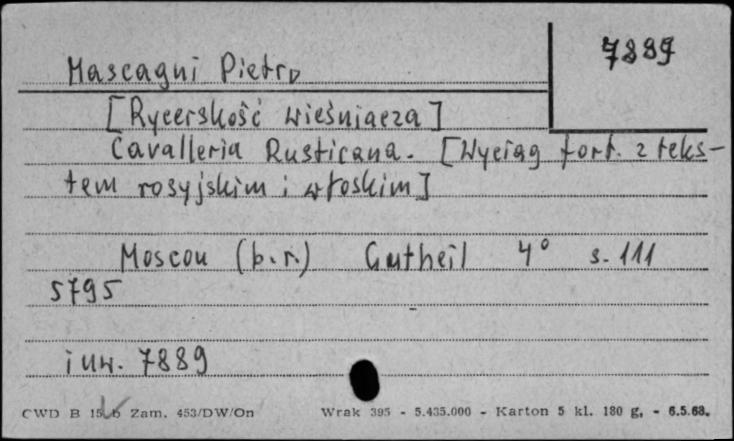 7889
Mascagni Pietro
[Rycerskość wieśniacza]
Cavalleria Rusticana. [Wyciąg fort. z teks-
tem rosyjskim i włoskim]
Moscou (b.r.) Gutheil 4° s. 111
5795
inw. 7889
CWD B 15/b Zam. 453/DW/On Wrak 395 - 5.435.000 - Karton 5 kl. 180 g. - 6.5.68.